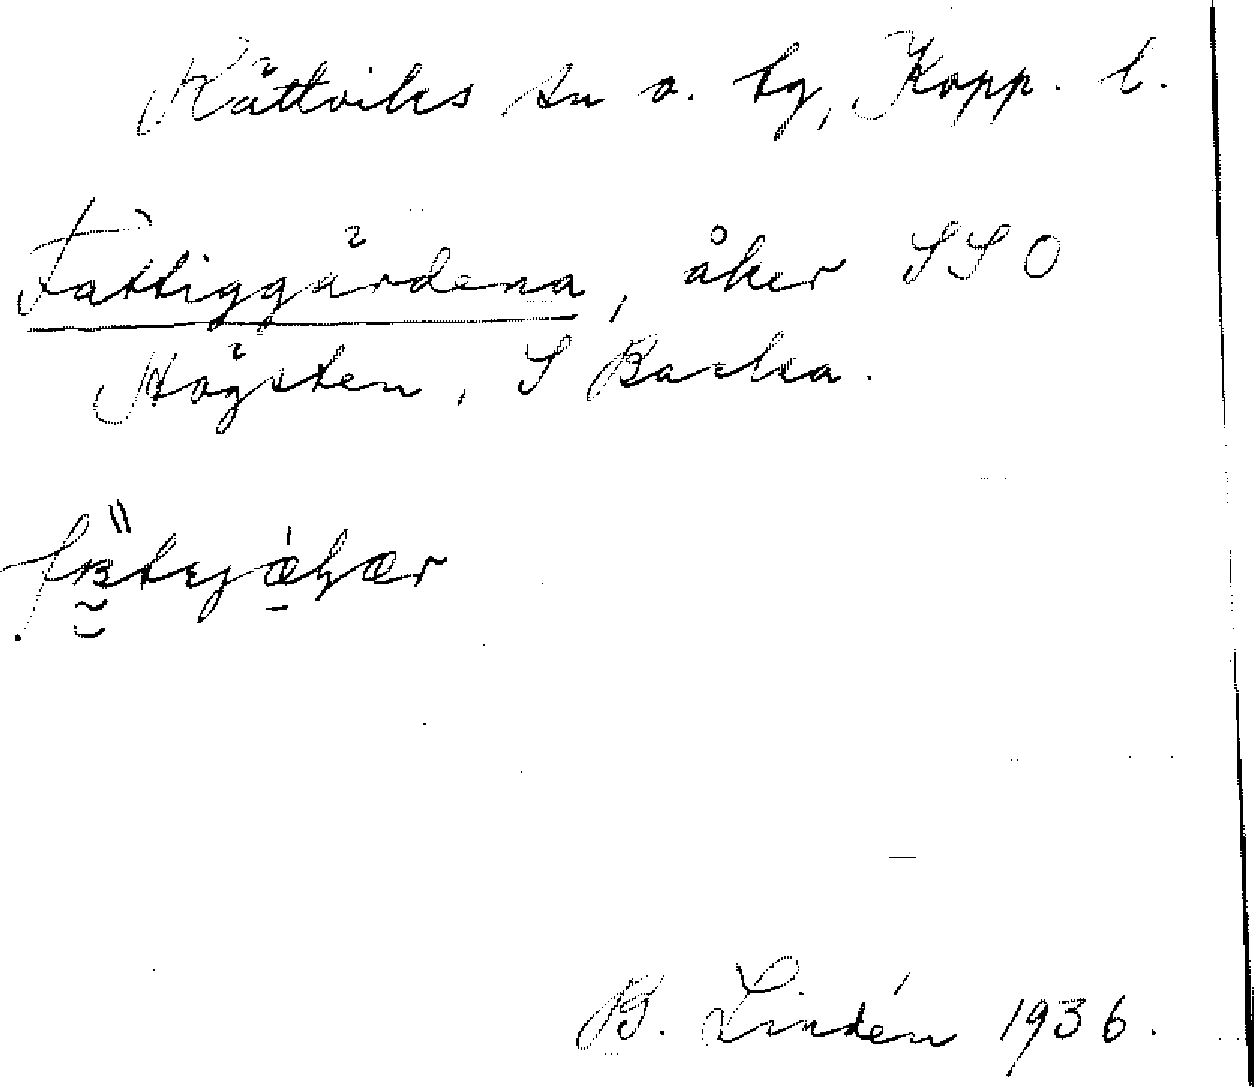 Rättviks sn o. tg, Kopp. l.
Fattiggårdena, åker SSO
Högsten, S Backa.
B. Lindén 1936.